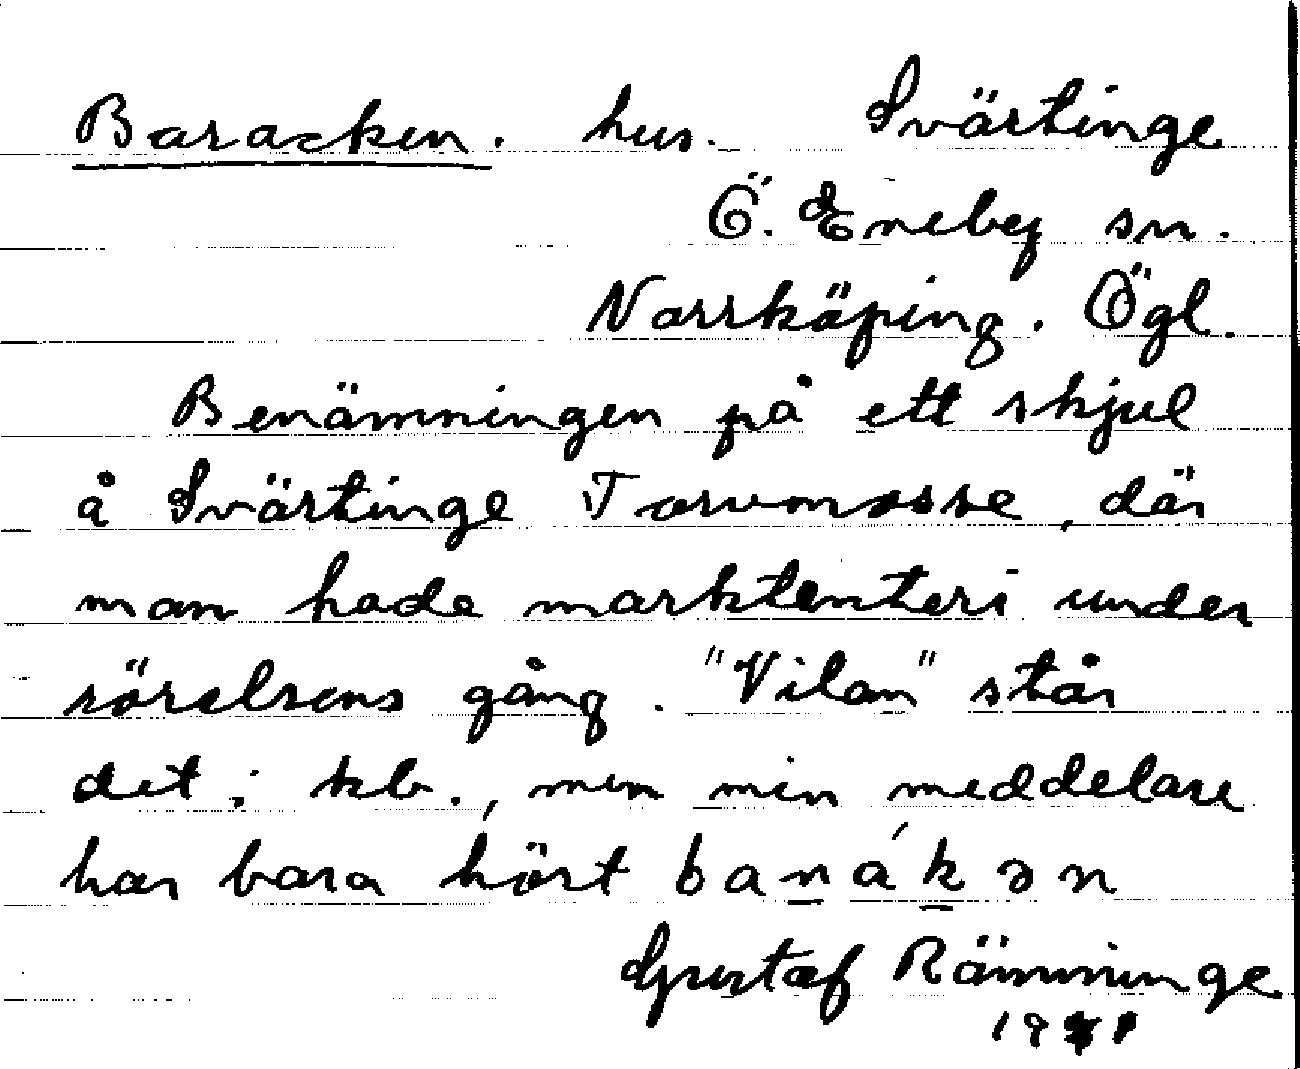 Baracken. hus. Svärtinge
Ö. Eneby sn.
Norrköping. Ögl.
Benämningen på ett skjul
å Svärtinge Torvmosse, där
man hade marktenteri under
rörelsens gång. "Vilan" står
det i kb., men min meddelare
har bara hört
Gustaf Ränninge